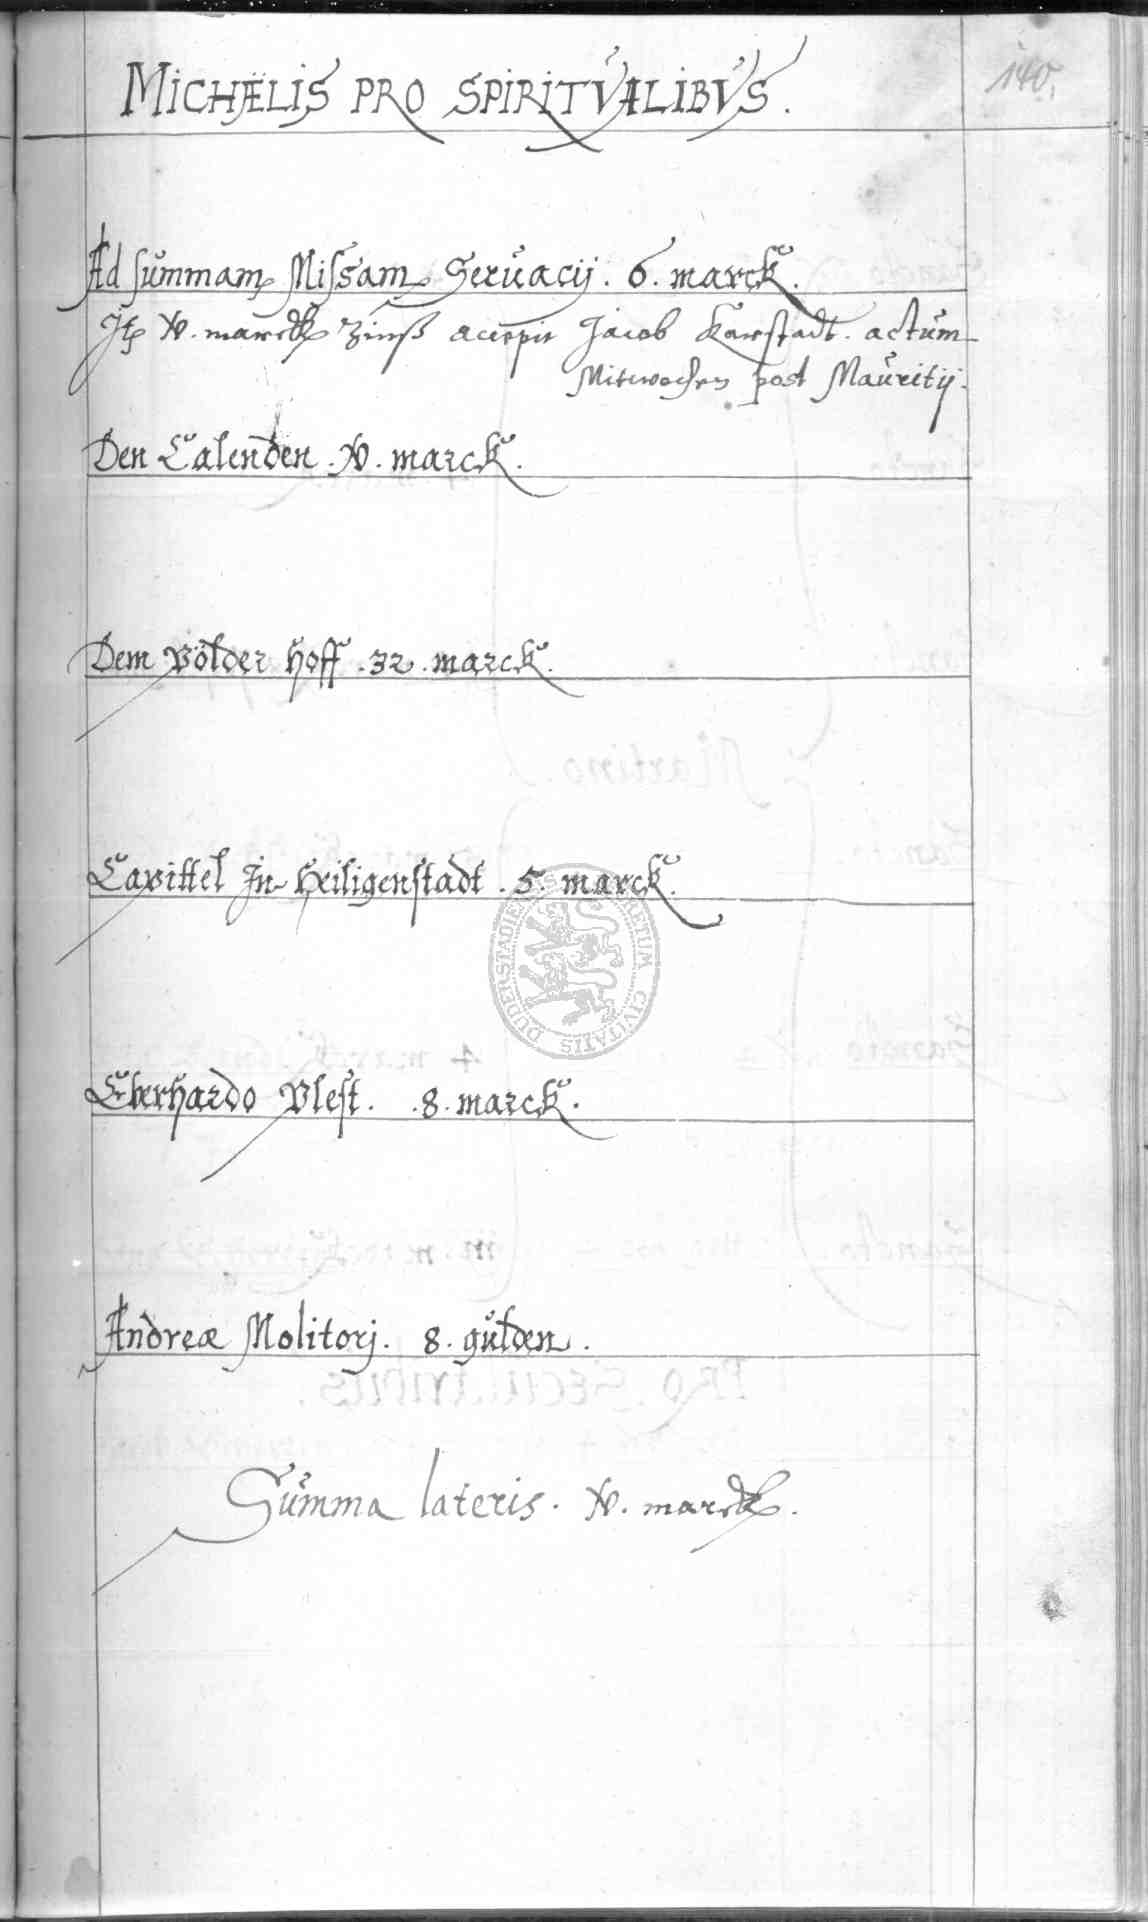 MICHÆLIS PRO SPIRITVALIBVS.
140.
Ad summam Missam Seruacij. 6. marck.
Jtem vj. marck Zinß accepit Jacob Karstadt. actum
Mitwochen post Mauritij.
Den Calenden. vj. marck.
Dem Pölder Hoff. 32. marck.
Capittel Jn Heiligenstadt. 5. marck.
Eberhardo Vlest. 8. marck.
Andreæ Molitorj. 8. gulden.
Summa lateris. vj. marck.
SECRETUM CIVITATIS DUDERSTADIENSIS